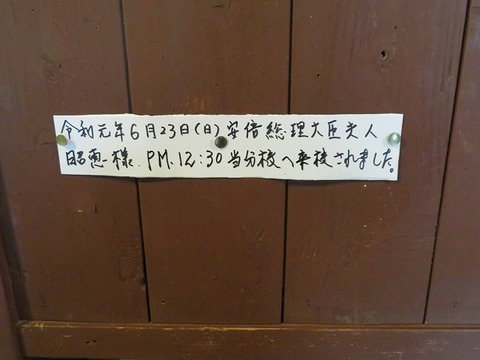 令和元年6月23日(日)安倍総理大臣夫人
昭恵様 PM.12:30当分校へ来校されました。